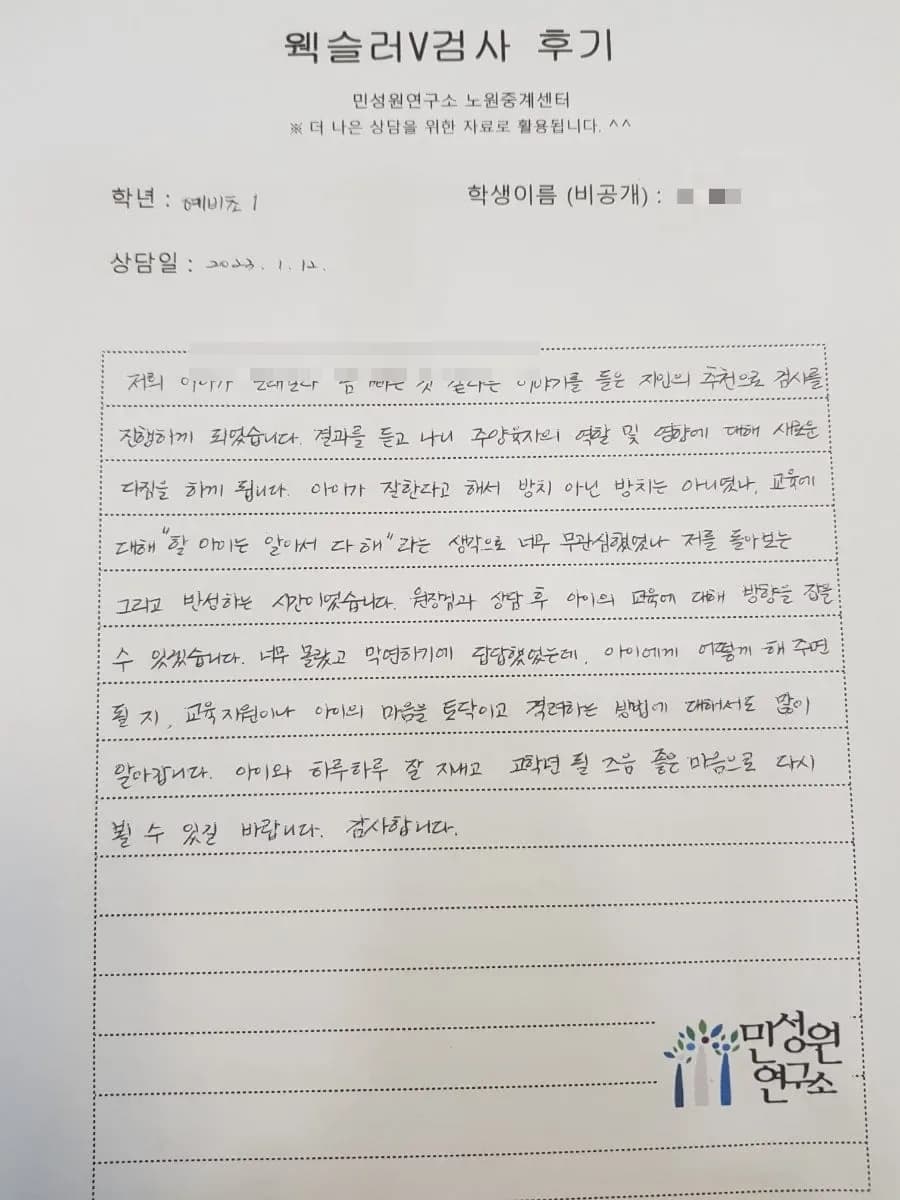 웩슬러V검사 후기
민성원연구소 노원중계센터
※ 더 나은 상담을 위한 자료로 활용됩니다. ^^
학년 : 예비초 1
학생이름 (비공개) :
상담일 : 2023. 1. 12.
저희 이야기를 들은 지인의 추천으로 검사를
진행하게 되었습니다. 결과를 듣고 나니 주양육자의 역할 및 영향에 대해 새로운
다짐을 하게 됩니다. 아이가 잘한다고 해서 방치 아닌 방치는 아니였나, 교육에
대해 "할 아이는 알아서 다 해"라는 생각으로 너무 무관심했었나 저를 돌아보는
그리고 반성하는 시간이었습니다. 원장님과 상담 후 아이의 교육에 대해 방향을 잡을
수 있겠습니다. 너무 몰랐고 막연하기에 답답했었는데, 아이에게 어떻게 해 주면
될 지, 교육지원이나 아이의 마음을 토닥이고 격려하는 방법에 대해서도 많이
알아갑니다. 아이와 하루하루 잘 지내고 고학년 될 즈음 좋은 마음으로 다시
뵐 수 있길 바랍니다. 감사합니다.
민성원
연구소